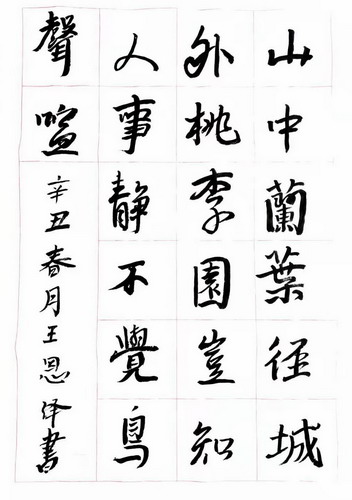 山中蘭葉徑城
外桃李園豈知
人事靜不覺鳥
聲喧
辛丑春月王恩書